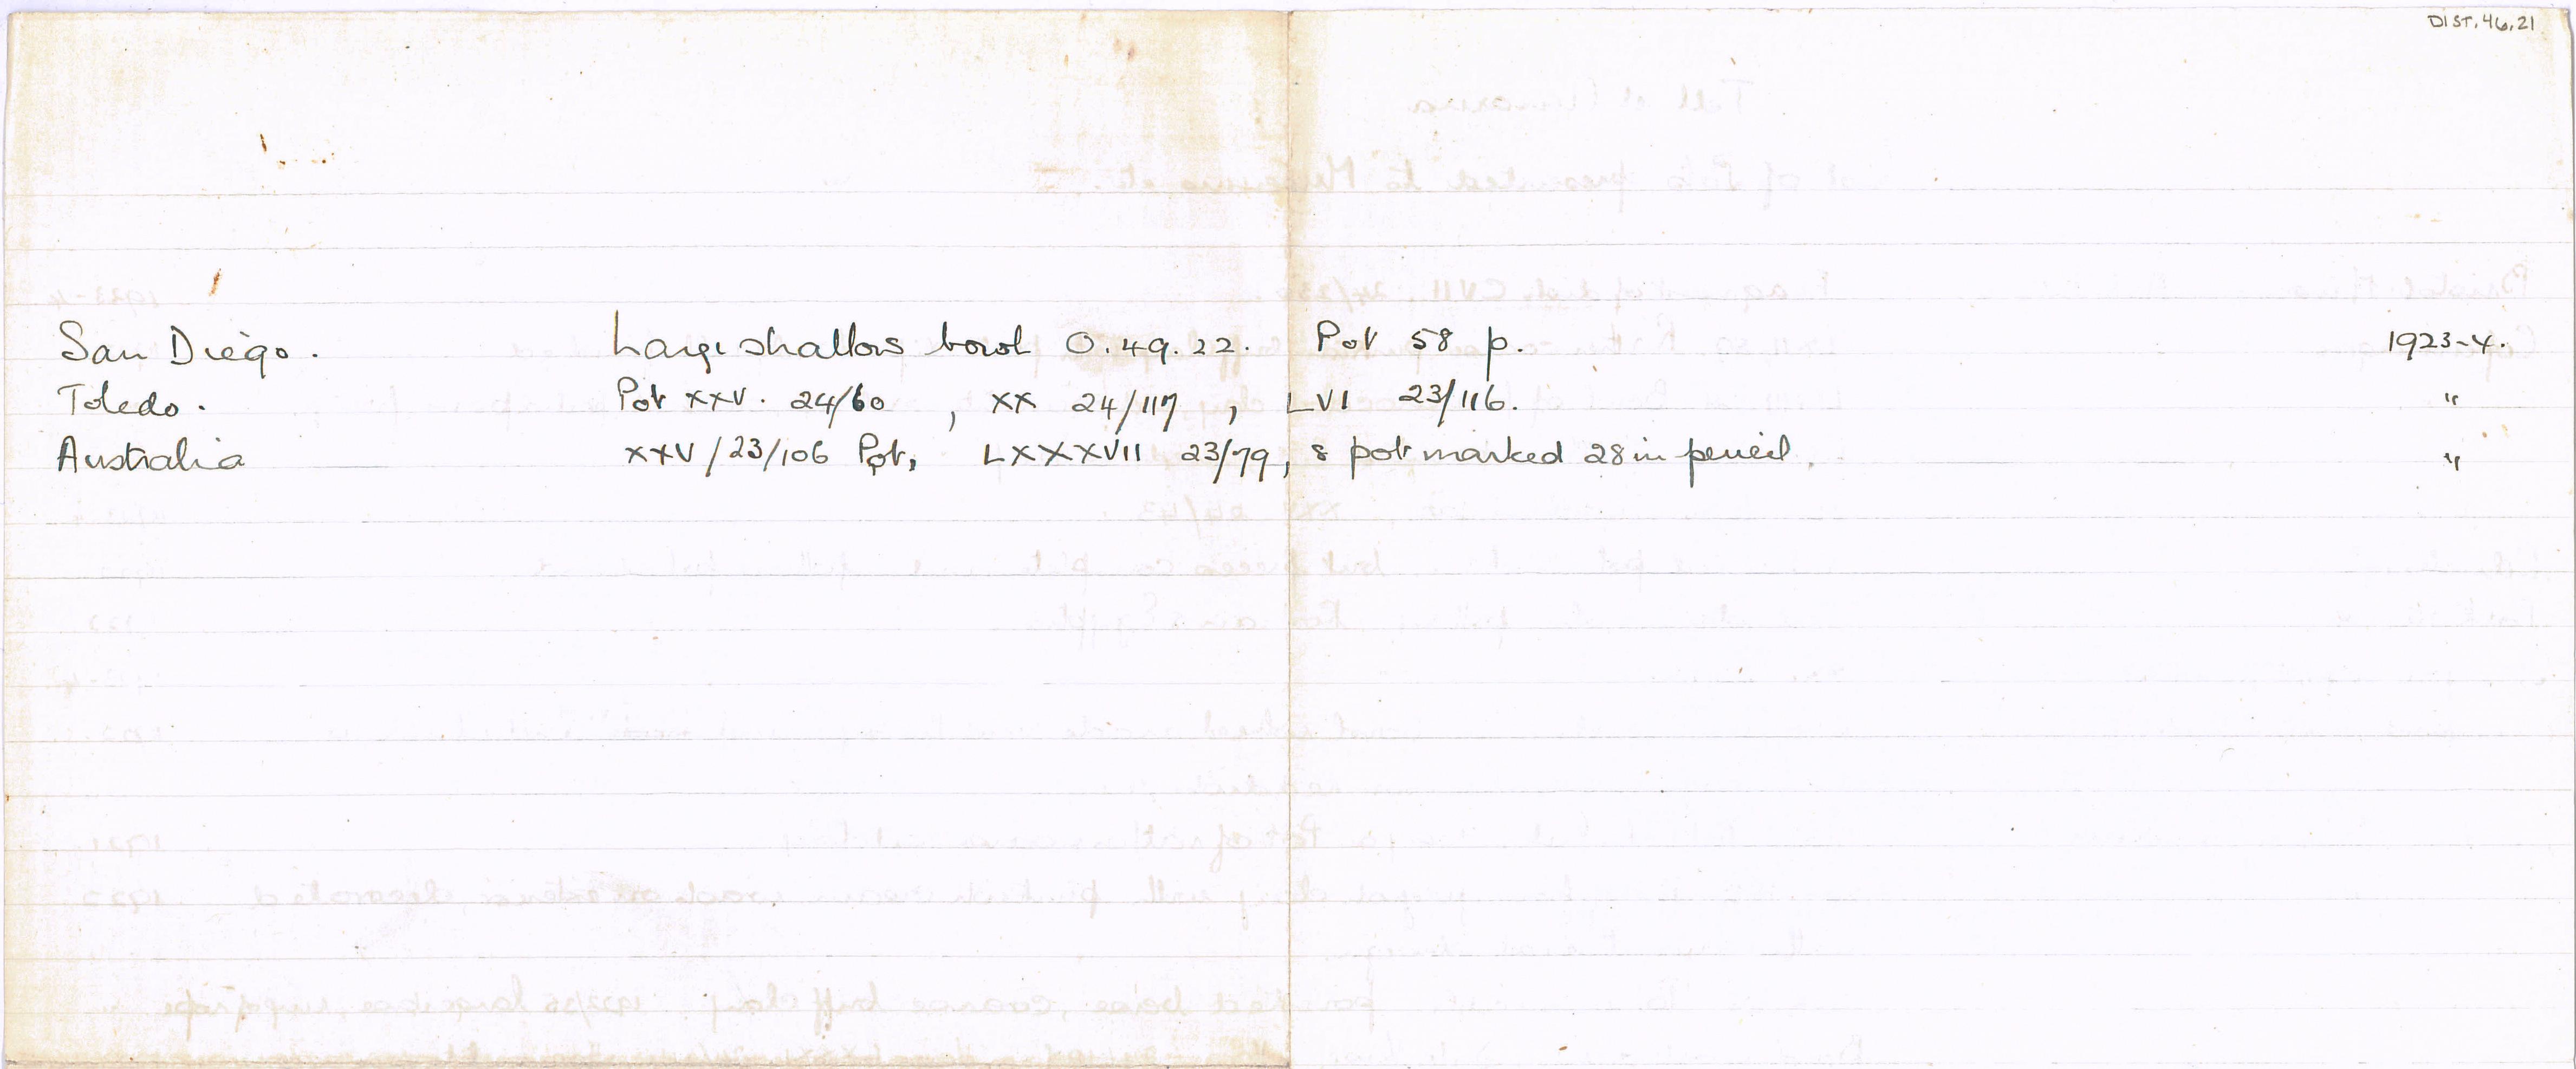 DIST.46.21
San Diego. Large shallow bowl O.49.22. Pot 58 p. 1923-4.
Toledo. Pot XXV. 24/60, XX 24/117, LVI 23/116. "
Australia XXV/23/106 Pot, LXXXVII 23/79, & pot marked 28 in pencil. "